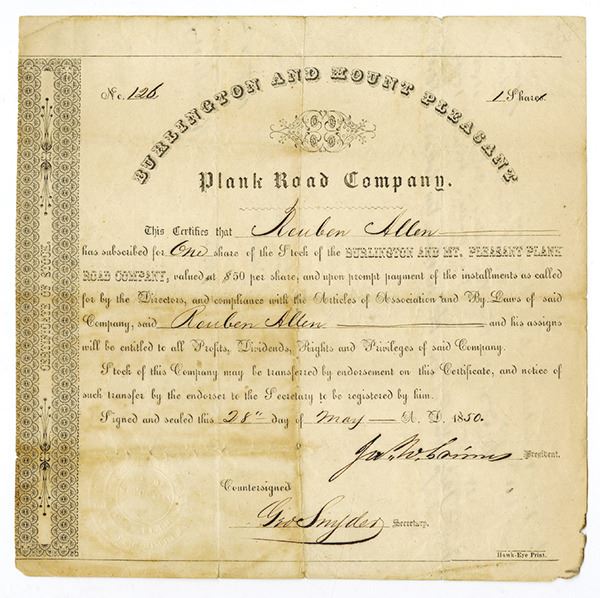 No. 126
1 Share
BURLINGTON AND MOUNT PLEASANT
Plank Road Company.
CERTIFICATE OF STOCK.
This Certifies that Reuben Allen
has subscribed for One share of the Stock of the BURLINGTON AND MT. PLEASANT PLANK
ROAD COMPANY, valued at $50 per share, and upon prompt payment of the installments as called
for by the Directors, and compliance with the Articles of Association and By-Laws of said
Company, said Reuben Allen and his assigns
will be entitled to all Profits, Dividends, Rights and Privileges of said Company.
Stock of this Company may be transferred by endorsement on this Certificate, and notice of
such transfer by the endorser to the Secretary to be registered by him.
Signed and sealed this 28" day of May A. D. 1850.
Jas. W. Grimes President.
Countersigned
Geo Snyder Secretary.
Hawk-Eye Print.